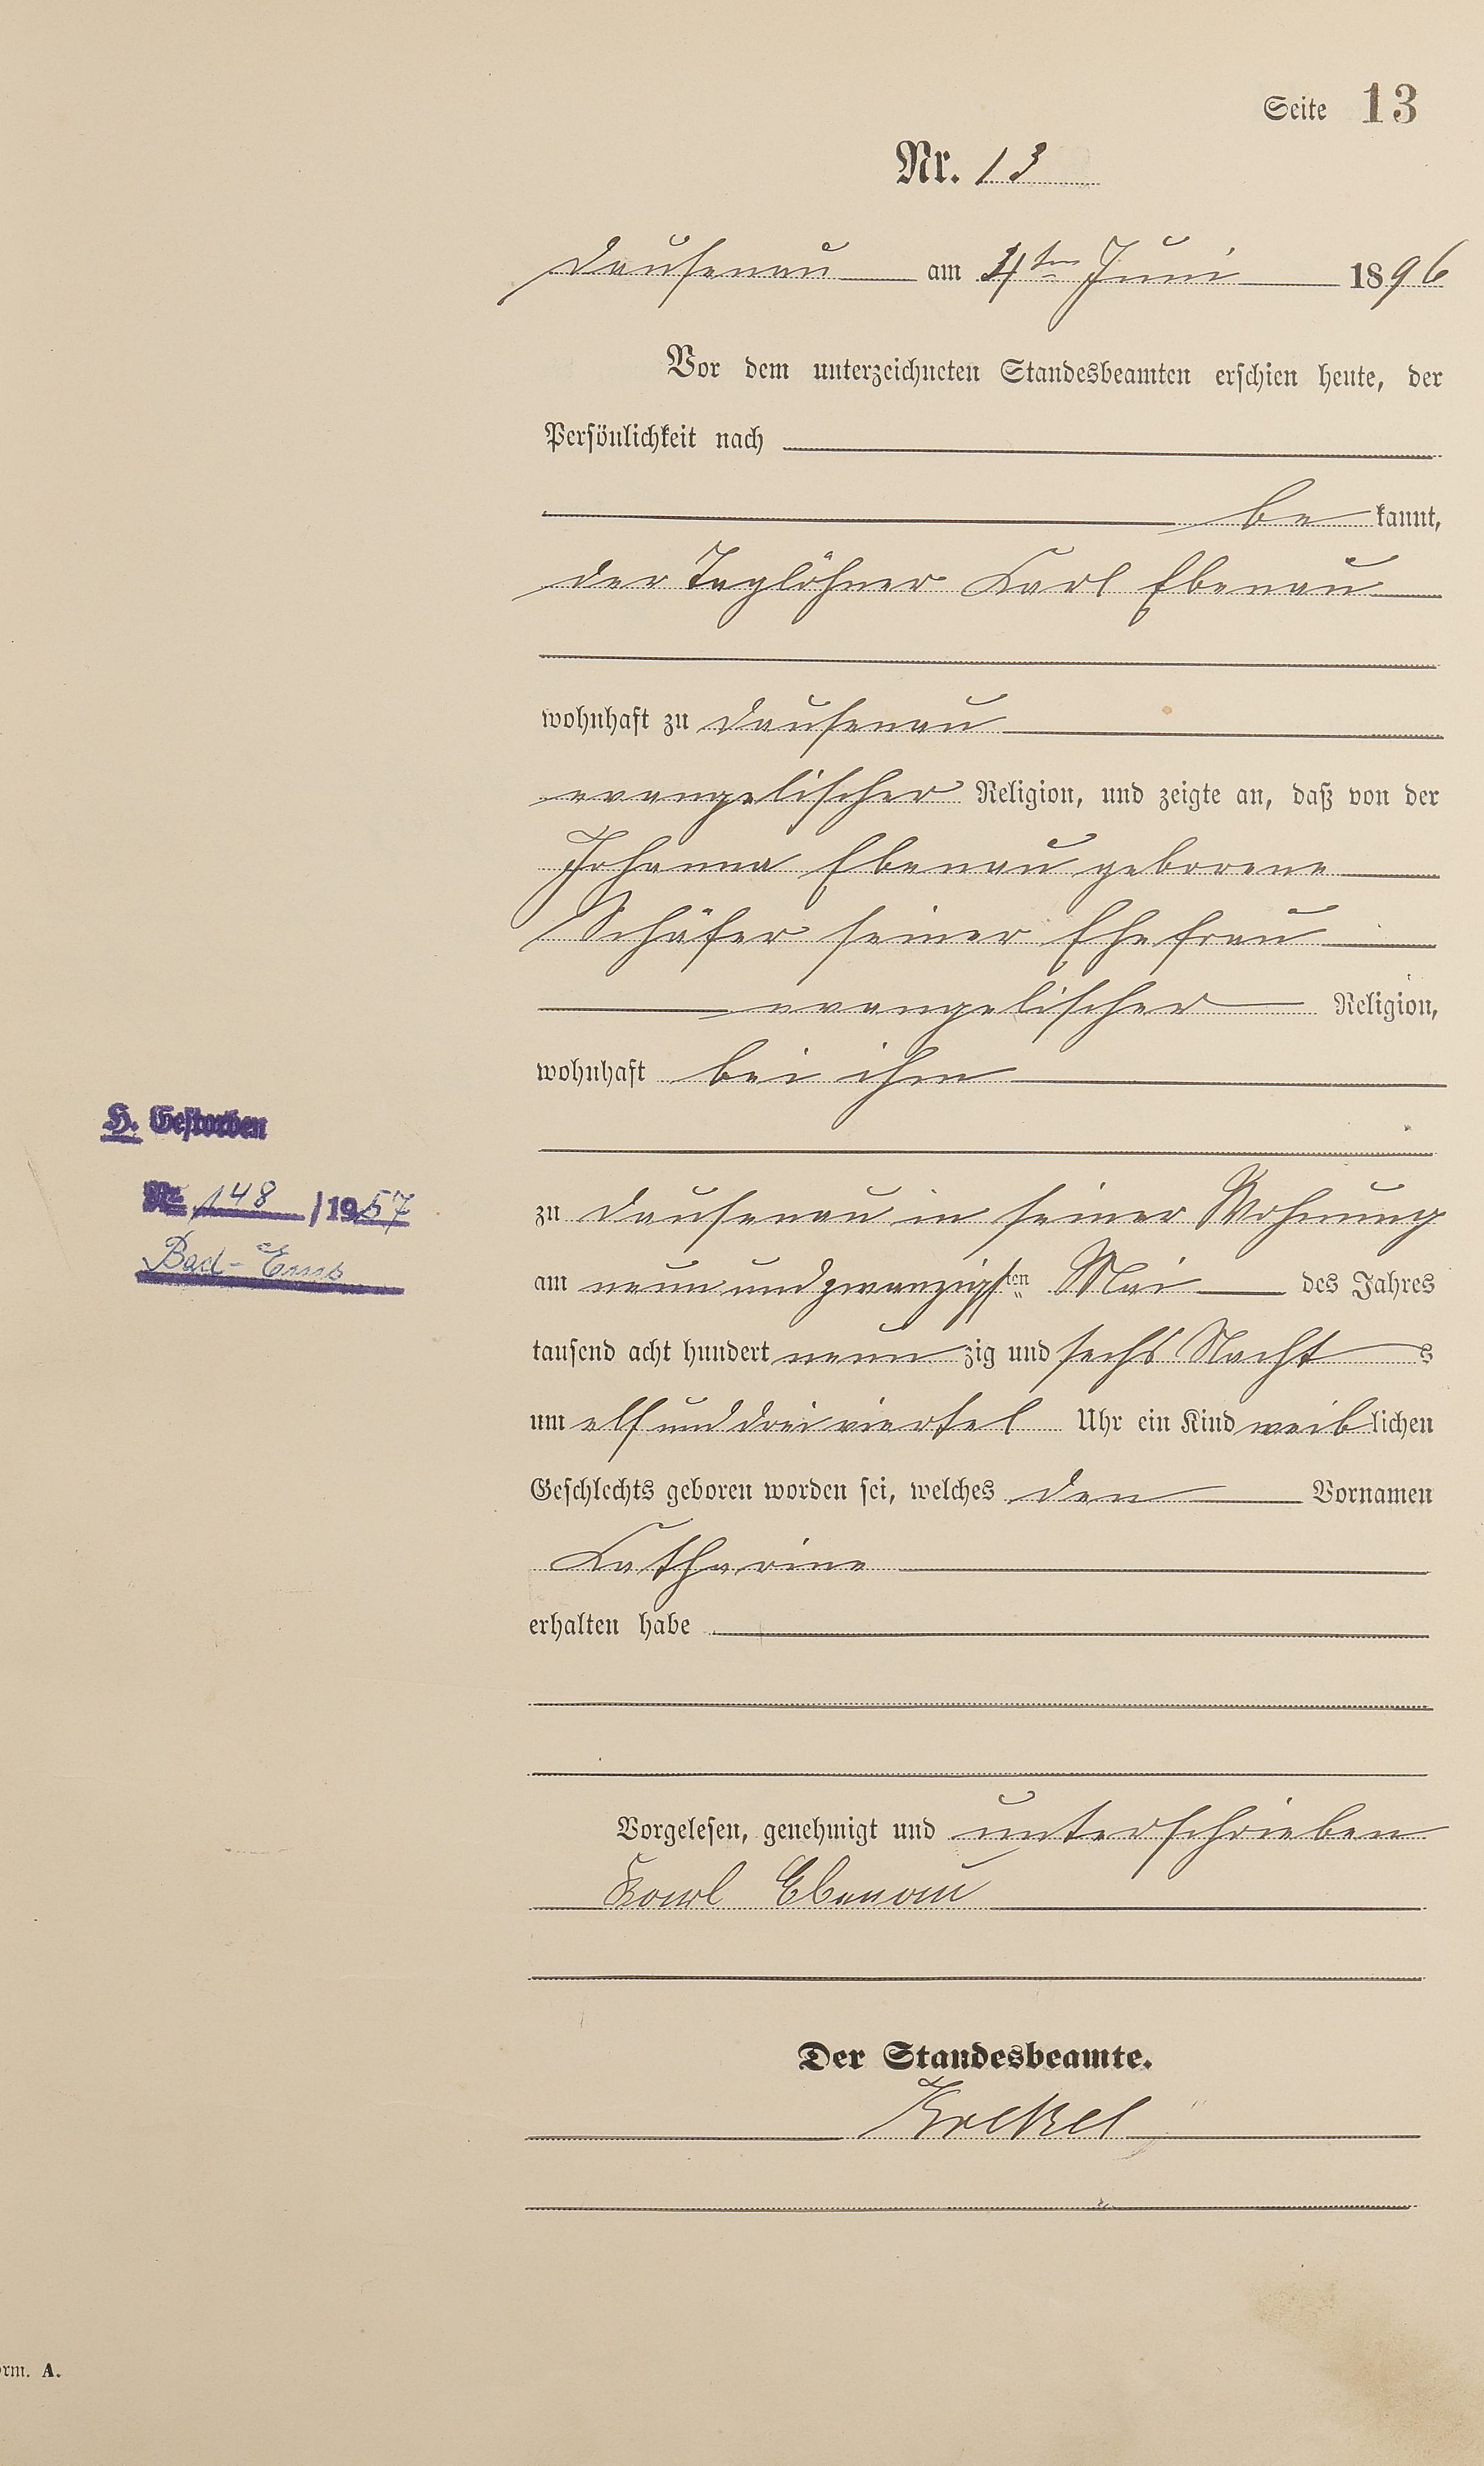 Seite 13
Nr. 13
Dausenau am 4ten Juni 1896
Vor dem unterzeichneten Standesbeamten erschien heute, der
Persönlichkeit nach
bekannt,
der Taglöhner Karl Ebenau
wohnhaft zu Dausenau
evangelischer Religion, und zeigte an, daß von der
Johanna Ebenau geborene
Schäfer seiner Ehefrau
evangelischer Religion,
wohnhaft bei ihm
H. Gestorben
Nr. 148 / 1957
Bad-Ems
zu Dausenau in seiner Wohnung
am neunundzwanzigsten Mai des Jahres
tausend acht hundert neunzig und sechs Nachts
um elf und dreiviertel Uhr ein Kind weiblichen
Geschlechts geboren worden sei, welches den Vornamen
Katharine
erhalten habe
Vorgelesen, genehmigt und unterschrieben
Karl Ebenau
Der Standesbeamte.
Krekel
orm. A.